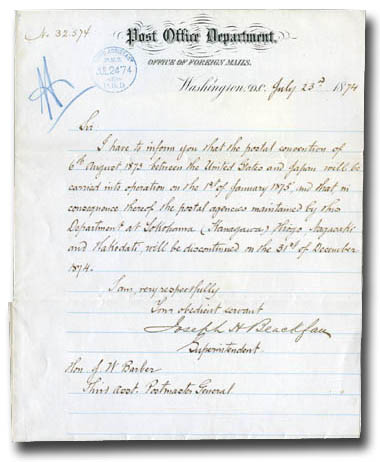 N. 32.574
Post Office Department,
OFFICE OF FOREIGN MAILS.
JUL 24 74
Washington, D.C. July 23d 1874
Sir
I have to inform you that the postal convention of
6th August 1873 between the United States and Japan will be
carried into operation on the 1st of January 1875, and that in
consequence thereof the postal agencies maintained by this
Department at Yokohama (Kanagawa) Hiogo Nagasaki
and Hakodati, will be discontinued on the 31st of December
1874.
I am, very respectfully
Your obedient servant
Joseph H Blackfan
Superintendent
Hon. J. W. Barber
Third Asst. Postmaster General